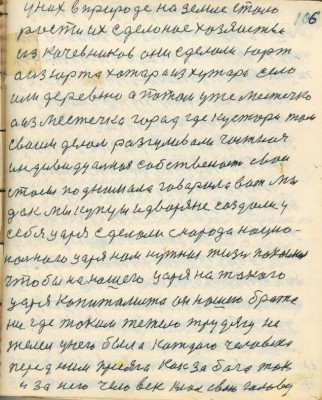 106
у них в природе на земле стало
рости их сделоное хозяйства
из качевников они сделали юрт
а из юрта хотара из хутара село
или деревню а потом уже местечко
а из местечка горад где кустари там
своим делом разгуливали частная
индевидуалная собственость свои
столы поднимала гаварила вот мы
дак мы купцы и дворяне создали у
себя царя сделали с народа нацио-
нолного царя нам нужна жизи
чтобы на нашего царя на такого
царя копиталиста он нашего брата
ни где таком тежело трудягу не
желел у него была каждого человека
перед ним присяга как за бога так
и за него человек клал свою голову